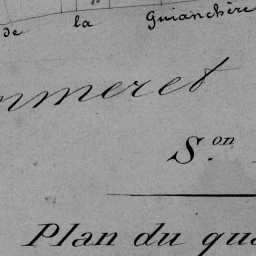 de la Guianchère
mmeret
S.on
Plan du qua